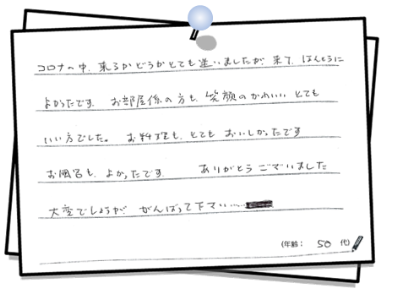 コロナの中、来るかどうかとても迷いましたが、来て、ほんとうに
よかったです。 お部屋係の方も、笑顔のかわいい とても
いい方でした。 お料理も、とても おいしかったです
お風呂も、よかったです ありがとう ございました
大変でしょうが、がんばって下さい……
(年齢: 50 代)